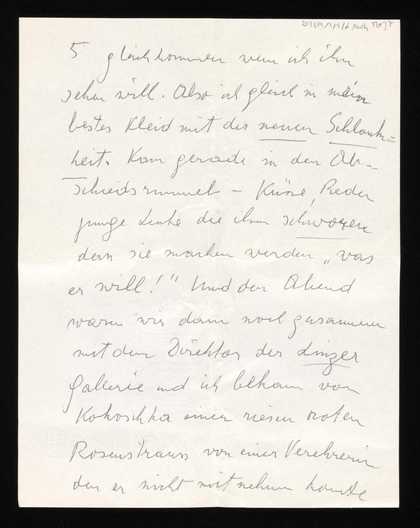 5 gleich kommen wenn ich ihn
sehen will. Also ich gleich in mein
bestes Kleid mit der neuen Schlank-
heit. Kam gerade in den Ab-
schiedsrummel – Küsse, Reden
junge Leute die ihm schworen
dass sie machen werden „was
er will!" Und den Abend
waren wir dann noch zusammen
mit dem Direktor der Linzer
Gallerie und ich bekam von
Kokoschka einen riesen roten
Rosenstrauss von einer Verehrerin
den er nicht mitnehmen konnte